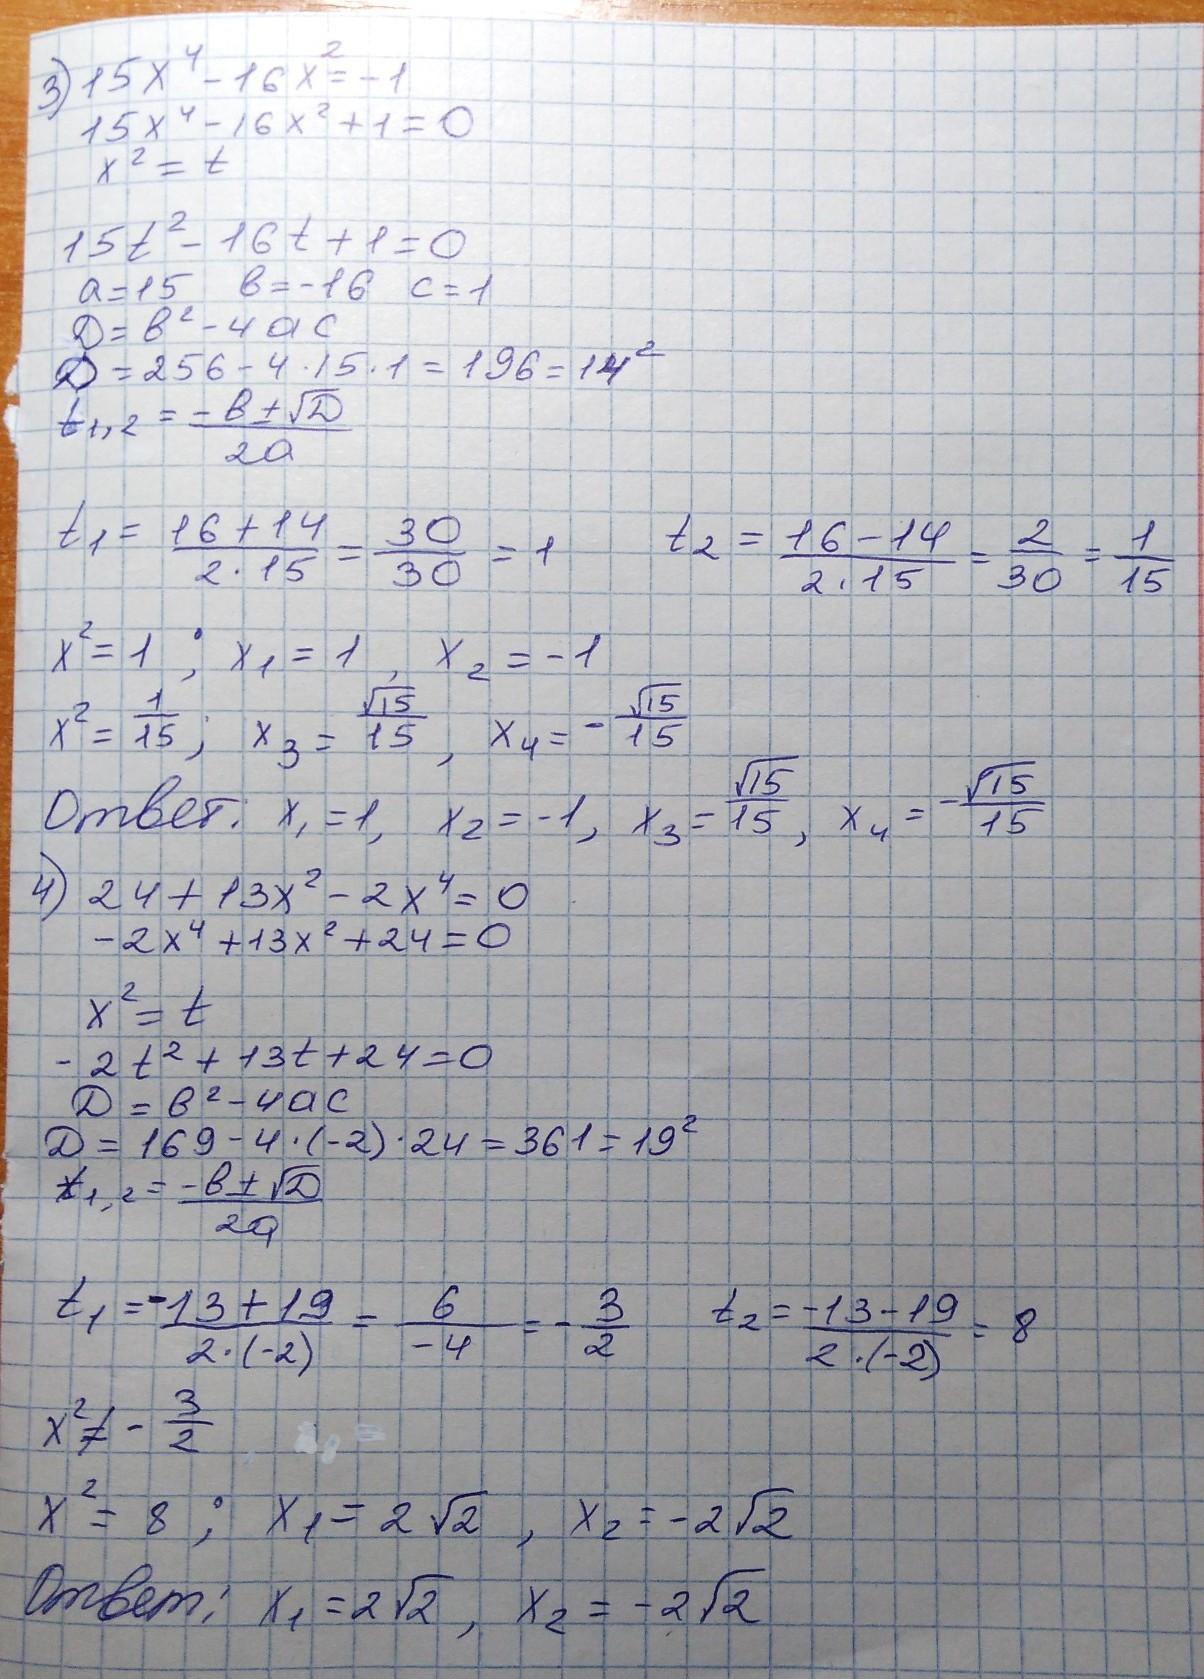 3) 15x⁴ - 16x² = -1
15x⁴ - 16x² + 1 = 0
x² = t
15t² - 16t + 1 = 0
a = 15 в = -16 c = 1
D = в² - 4ac
D = 256 - 4·15·1 = 196 = 14²
t₁,₂ = (-в ± √D)/(2a)
t₁ = (16 + 14)/(2·15) = 30/30 = 1 t₂ = (16 - 14)/(2·15) = 2/30 = 1/15
x² = 1 ; x₁ = 1 , x₂ = -1
x² = 1/15 ; x₃ = √15/15 , x₄ = -√15/15
Ответ: x₁ = 1, x₂ = -1, x₃ = √15/15 , x₄ = -√15/15
4) 24 + 13x² - 2x⁴ = 0
-2x⁴ + 13x² + 24 = 0
x² = t
-2t² + 13t + 24 = 0
D = в² - 4ac
D = 169 - 4·(-2)·24 = 361 = 19²
t₁,₂ = (-в ± √D)/(2a)
t₁ = (-13 + 19)/(2·(-2)) = 6/(-4) = -3/2 t₂ = (-13 - 19)/(2·(-2)) = 8
x² ≠ -3/2
x² = 8 ; x₁ = 2√2 , x₂ = -2√2
Ответ: x₁ = 2√2 , x₂ = -2√2